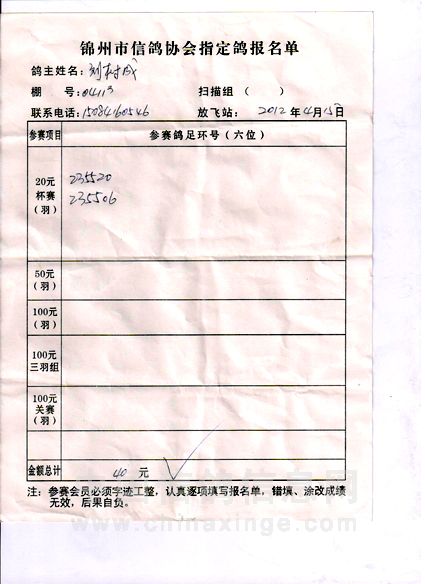 锦州市信鸽协会指定鸽报名单
鸽主姓名：刘树成
棚 号：04113 扫描组（ ）
联系电话：15084160546 放飞站： 2012 年 4 月 15 日
参赛项目 参赛鸽足环号（六位）
20元
杯赛
（羽）
235520
235506
50元
（羽）
100元
（羽）
100元
三羽组
100元
关赛
（羽）
金额总计 40 元
注：参赛会员必须字迹工整，认真逐项填写报名单，错填、涂改成绩
无效，后果自负。
www.chinaxinge.com